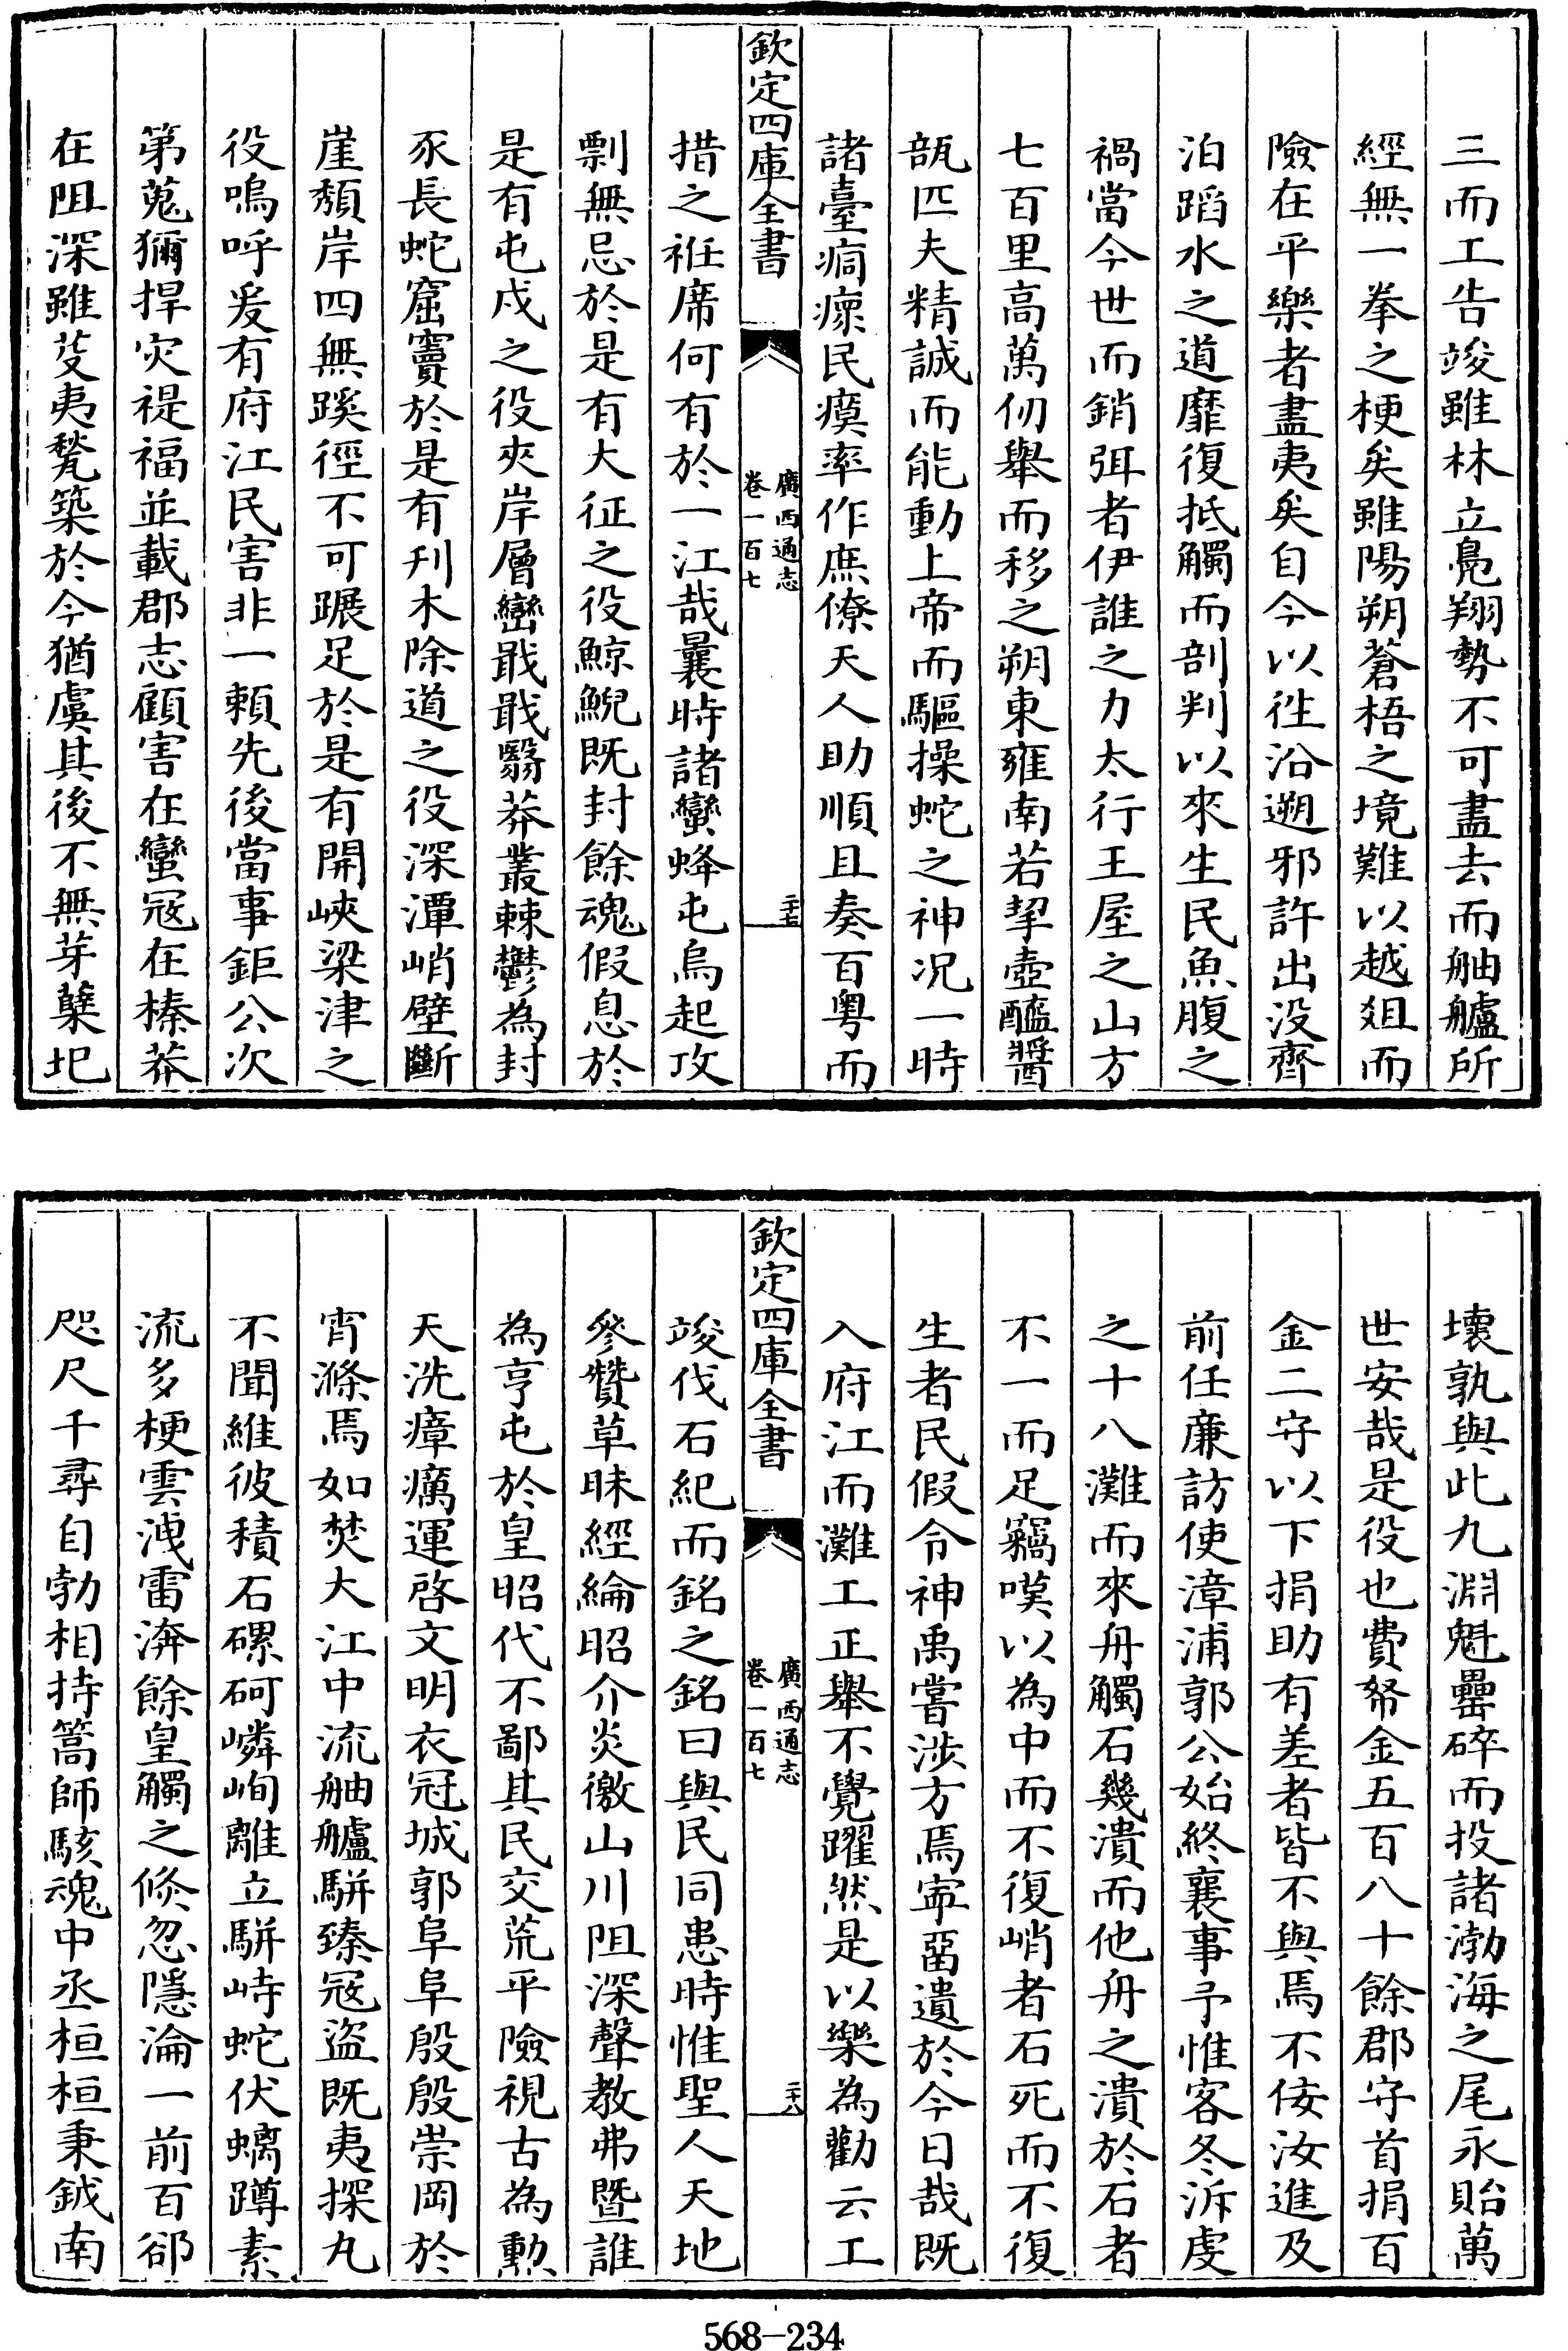 三而工告竣雖林立鳧翔勢不可盡去而舳艫所
經無一拳之梗矣雖陽朔蒼梧之境難以越俎而
險在平樂者盡夷矣自今以徃沿遡邪許出没齊
泊蹈水之道靡復抵觸而剖判以來生民魚腹之
禍當今世而銷弭者伊誰之力太行王屋之山方
七百里高萬仞舉而移之朔東雍南若挈壺醯醬
瓿匹夫精誠而能動上帝而驅操蛇之神况一時
諸臺痌瘝民瘼率作庶僚天人助順且奏百粤而
欽定四庫全書
廣西通志
卷一百七
二十七
措之袵席何有於一江哉曩時諸蠻蜂屯烏起攻
剽無忌於是有大征之役鯨鯢既封餘魂假息於
是有屯戍之役夾岸層巒戢戢翳莽叢棘鬱為封
豕長蛇窟竇於是有刋木除道之役深潭峭壁斷
崖頽岸四無蹊徑不可蹍足於是有開峽梁津之
役嗚呼爰有府江民害非一頼先後當事鉅公次
第蒐獮捍灾禔福並載郡志顧害在蠻冦在榛莽
在阻深雖芟夷甃築於今猶虞其後不無芽蘖圮
壞孰與此九淵魁罍碎而投諸渤海之尾永貽萬
世安哉是役也費帑金五百八十餘郡守首捐百
金二守以下捐助有差者皆不與焉不佞汝進及
前任亷訪使漳浦郭公始終襄事予惟客冬泝虔
之十八灘而來舟觸石幾潰而他舟之潰於石者
不一而足竊嘆以為中而不復峭者石死而不復
生者民假令神禹嘗渉方焉寧畱遺於今日哉既
入府江而灘工正舉不覺躍然是以樂為勸云工
欽定四庫全書
廣西通志
卷一百七
二十八
竣伐石紀而銘之銘曰與民同患時惟聖人天地
參贊草昧經綸昭介炎徼山川阻深聲教弗暨誰
為亨屯於皇昭代不鄙其民交荒平險視古為勲
天洗瘴癘運啓文明衣冠城郭阜阜殷殷崇岡於
宵滌焉如焚大江中流舳艫駢臻冦盜既夷探丸
不聞維彼積石磥砢嶙峋離立駢峙蛇伏螭蹲素
流多梗雲洩雷渀餘皇觸之倐忽隱淪一前百郤
咫尺千尋自勃相持篙師駭魂中丞桓桓秉鉞南
568-234